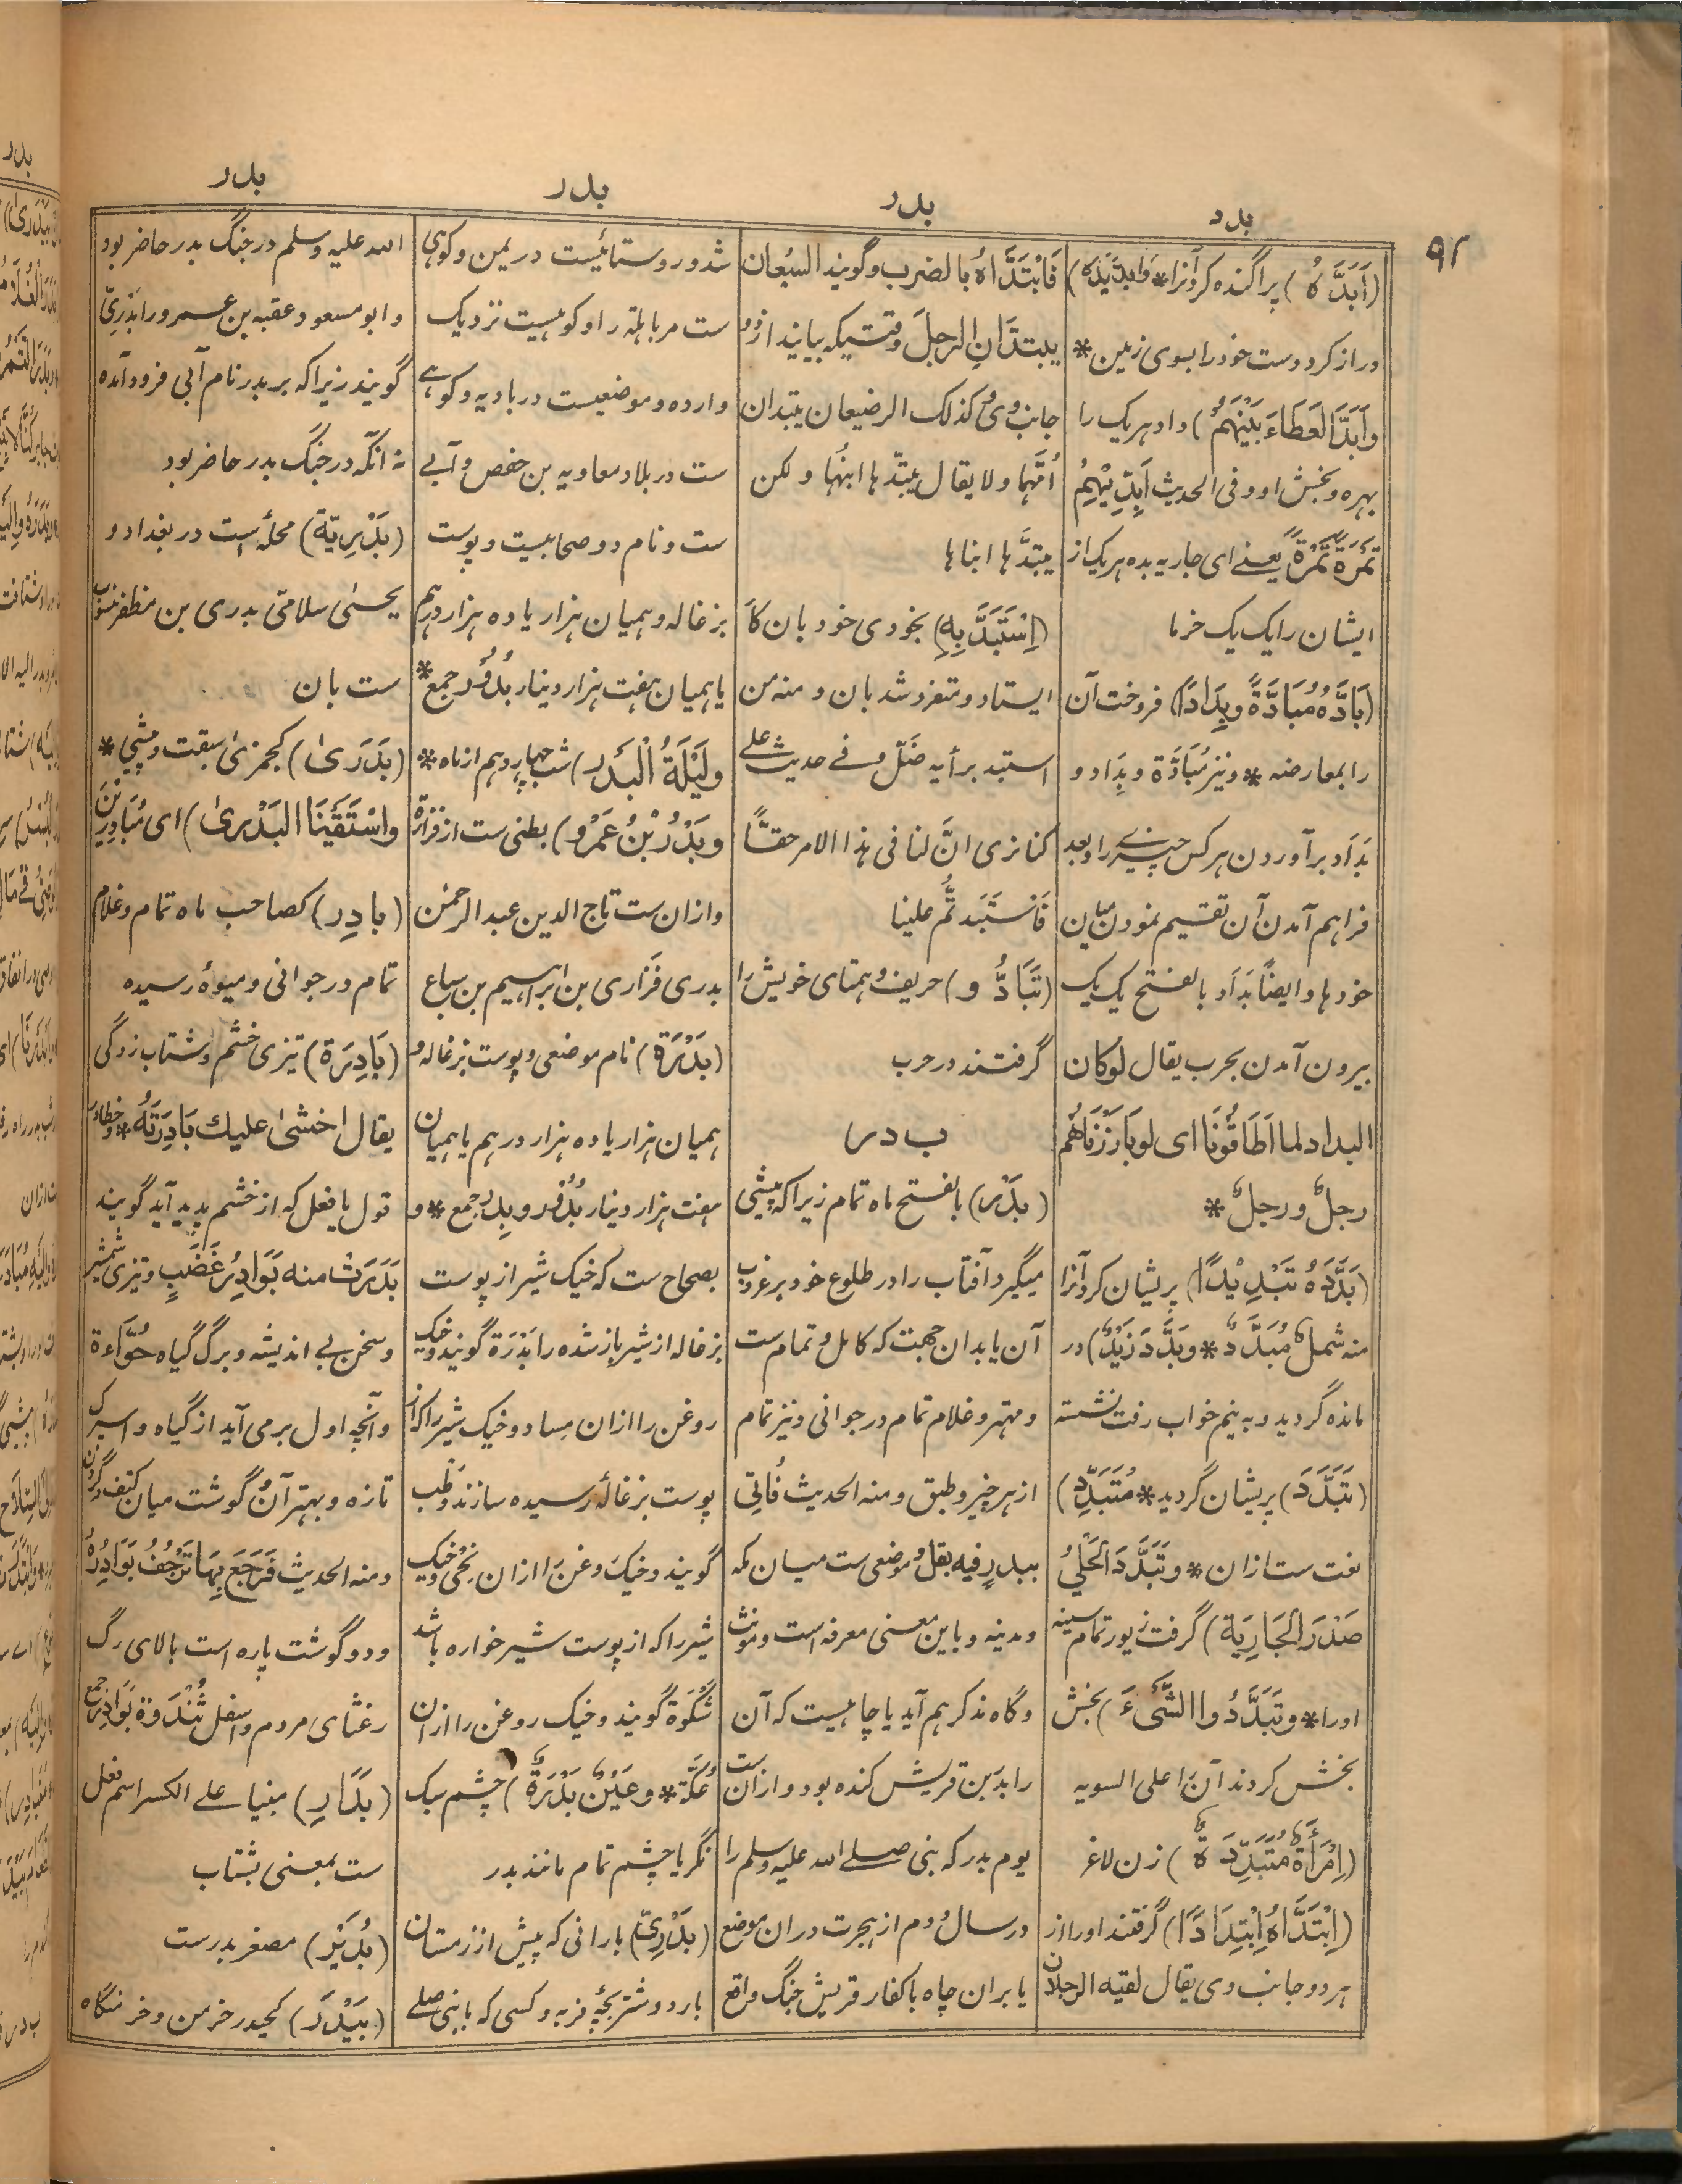 ۹۲
بدد
بدر
بدر
بدر
(اَبَدَّهُ) پراگنده کرد آنرا * وَاَبَدَّ یَدَهُ)
دراز کرد دست خود را بسوی زمین *
وَاَبَدَّ العَطَاءَ بَیْنَهُمْ) داد هریک را
بهره و بخش او و فی الحدیث اَبِدِّیْهِمْ
تَمْرَةً تَمْرَةً یعنے ای جاریه بده هریک از
ایشان را یک یک خرما
(بَادَّهُ مُبَادَّةً وبِدَادًا) فروخت آن
را بمعارضه * ونیز مُبَادَّة وبِدَاد و
بَدَاد برآوردن هرکس چیزے را و بعد
فراهم آمدن آن تقسیم نمودن میان
خودها و ایضاً بَدَاد بالفتح یک یک
بیرون آمدن بحرب یقال لوکان
البداد لما اَطَاقُونَا ای لو بَارَزْنَاهُم
رجلٌ ورجلٌ *
(بَدَّدَهُ تَبْدِیْدًا) پریشان کرد آنرا
منه شملٌ مُبَدَّدٌ * وبَدَّدَ زَیْدٌ) در
مانده گردید و به نیم خواب رفت نشسته
(تَبَدَّدَ) پریشان گردید * مُتَبَدِّد)
نعت ست ازان * وتَبَدَّدَ الحَلْیُ
صَدْرَ الجَارِیَة) گرفت زیور تمام سینه
اورا * وتَبَدَّدُوا الشَّیْءَ) بخش
بخش کردند آنرا علی السویه
(اِمْرَأَةٌ مُتَبَدِّدَةٌ) زن لاغر
(اِبْتَدَّاهُ اِبْتِدَادًا) گرفتند اورا از
هر دو جانب وی یقال لقیه الرجلان
فَابْتَدَّاهُ بالضرب وگویند السبُعان
یبتدَّانِ الرجلَ وقتیکه بیایند از دو
جانب وی وکذلک الرضیعان یبتدان
اُمَّهُما ولا یقال یبتدّها ابنُها ولکن
یبتدَّها ابناها
(اِسْتَبَدَّ بِهِ) بخودی خود بان کا
ایستاد ومتفرد شد بان ومنه من
استبد برأیه ضَلّ وفے حدیث علے
کنا نری انَّ لنا فی هذا الامر حقّاً
فَاسْتَبَدتُّم علینا
(تَبَادُّوا) حریف وهمتای خویش را
گرفتند در حرب
ب د ر
(بَدْر) بالفتح ماه تمام زیراکه پیشی
میگیرد آفتاب را در طلوع خود بر غروب
آن یا بدان جهت که کامل وتمام ست
ومهتر وغلام تمام در جوانی ونیز تمام
از هر چیز وطبق ومنه الحدیث فاُتی
ببدرٍ فیه بقل وموضعی ست میان مکه
ومدینه وباین معنی معرفه است ومونث
وگاه مذکر هم آید یا چاهیست که آن
را بدر بن قریش کنده بود وازان ست
یوم بدر که نبی صلے الله علیه وسلم را
در سال دوم از هجرت دران موضع
یا بران چاه باکفار قریش جنگ واقع
شد وروستائیست در یمن وکوهی
ست مر باهله را وکوهیست نزدیک
وارده وموضعیست در بادیه وکوهے
ست در بلاد معاویه بن حفص وآبے
ست ونام دو صحابیست وپوست
بزغاله وهمیان هزار یا ده هزار درهم
یا همیان هفت هزار دینار بُدُوْر جمع *
ولَیْلَةُ الْبَدْر) شب چهاردهم از ماه *
وبَدْرُ بْنُ عَمْرٍو) بطنی ست از فزاره
وازان ست تاج الدین عبد الرحمٰن
بدری فَزاری بن ابراهیم بن سباع
(بَدْرَة) نام موضعی وپوست بزغاله و
همیان هزار یا ده هزار درهم یا همیان
هفت هزار دینار بُدُوْر وبِدَر جمع * و
بصحاح ست که خیک شیر از پوست
بزغاله از شیر باز شده را بَدْرَة گویند وخیک
روغن را ازان مِساد وخیک شیر را که از
پوست بزغالهٔ رسیده سازند وَطْب
گویند وخیک روغن را ازان نِحْی وخیک
شیر را که از پوست شیر خواره باشد
شَکْوَة گویند وخیک روغن را ازان
عُکَّة * وعَیْنٌ بَدْرَةٌ) چشم سبک
نگر یا چشم تمام مانند بدر
(بَدْرِیّ) بارانی که پیش از زمستان
بارد وشتر بچهٔ فربه وکسی که با نبی صلے
الله علیه وسلم در جنگ بدر حاضر بود
وابو مسعود عقبه بن عمرو را بَدْرِیّ
گویند زیراکه بر بدر نام آبی فرود آمده
نه آنکه در جنگ بدر حاضر بود
(بَدْرِیّة) محله‌ٔ است در بغداد و
یحیٰی سلامیّ بدری بن مظفر منسوب
ست بان
(بَدَرَیٰ) کجمزیٰ سبقت وپیشی *
واسْتَقَیْنَا البَدَریٰ) ای مُبَادِرِیْنَ
(بادِر) کصاحب ماه تمام وغلام
تمام در جوانی ومیوهٔ رسیده
(بَادِرَة) تیزی خشم وشتاب زدگی
یقال اخشیٰ علیك بَادِرَتَهُ * وخطا در
قول یا فعل که از خشم پدید آید گویند
بَدَرَتْ منه بَوَادِرُ غَضَبٍ وتیزی شمشیر
وسخن بے اندیشه وبرگ گیاه حُوَّاءَة
وآنچه اول برمی آید از گیاه واسپرک
تازه وبهتر آن وگوشت میان کتف وگردن
ومنه الحدیث فَرَجَعَ بِهَا تَرْجُفُ بَوَادِرُهُ
ودو گوشت پاره است بالای رگ
رغثای مردم واسفل ثُنْدَوة بَوَادِر جمع
(بَدَارِ) مبنیا علے الکسر اسم فعل
ست بمعنی بشتاب
(بُدَیْر) مصغر بدرست
(بَیْدَر) کحیدر خرمن وخرمنگاه